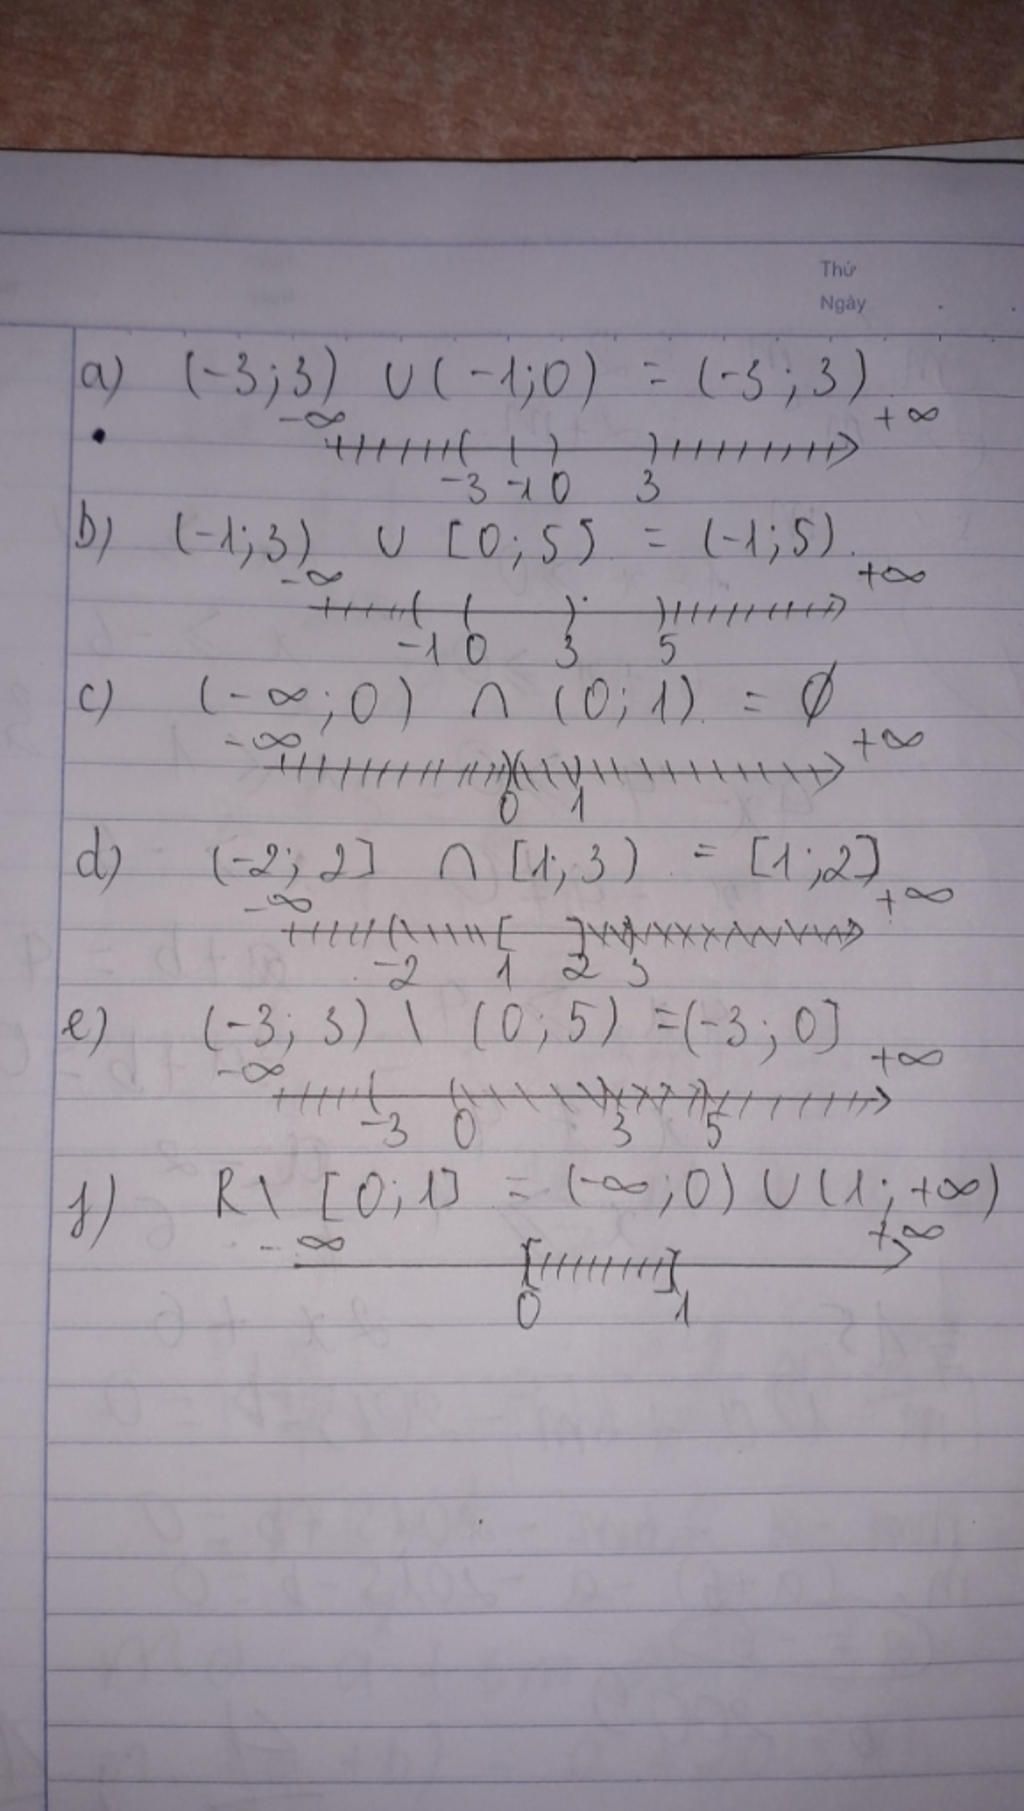 Thứ
Ngày
a) (-3;3) ∪ (-1;0) = (-3;3)
-∞ +∞
-3 -1 0 3
b) (-1;3) ∪ [0;5) = (-1;5).
-∞ +∞
-1 0 3 5
c) (-∞;0) ∩ (0;1) = ∅
-∞ +∞
0 1
d) (-2;2] ∩ [1;3) = [1;2]
-∞ +∞
-2 1 2 3
e) (-3;3) \ (0;5) =(-3;0]
-∞ +∞
-3 0 3 5
f) R\ [0;1] = (-∞;0) ∪ (1;+∞)
-∞ +∞
0 1